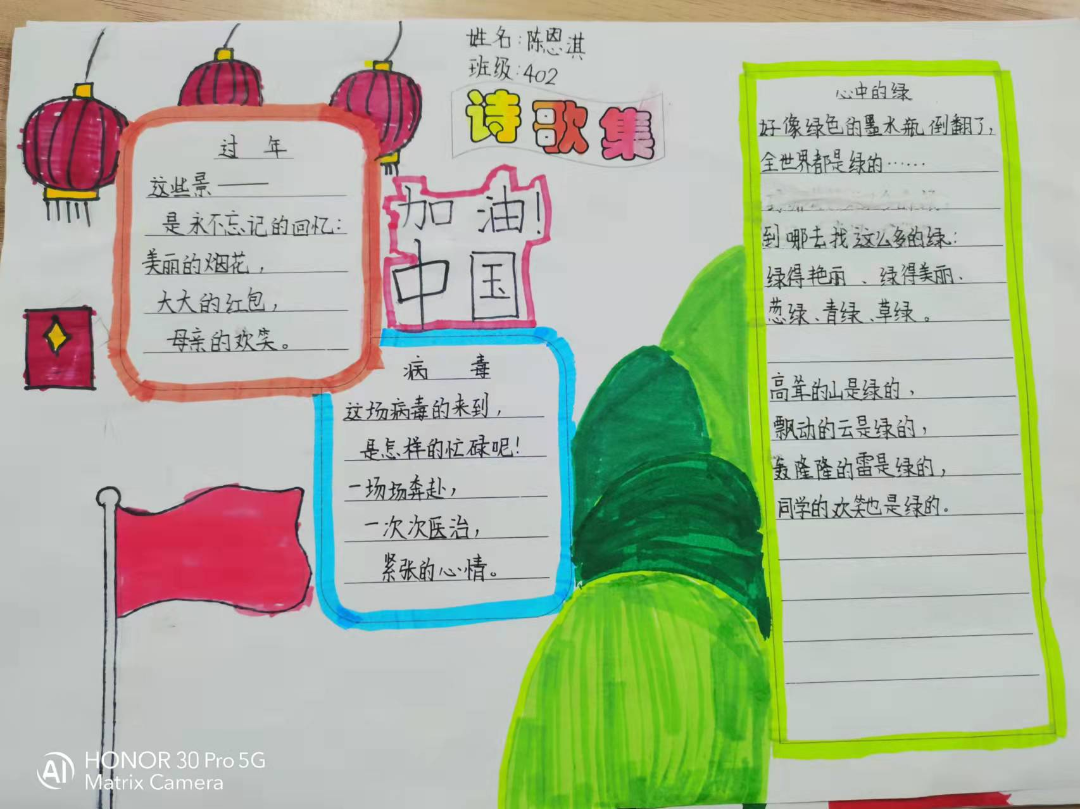 姓名:陈恩淇
班级:402
诗歌集
过 年
这些景——
是永不忘记的回忆:
美丽的烟花,
大大的红包,
母亲的欢笑。
加油!
中国
病 毒
这场病毒的来到,
是怎样的忙碌呢!
一场场奔赴,
一次次医治,
紧张的心情。
心中的绿
好像绿色的墨水瓶倒翻了,
全世界都是绿的……
到哪去找这么多的绿:
绿得艳丽、绿得美丽、
葱绿、青绿、草绿。
高耸的山是绿的,
飘动的云是绿的,
轰隆隆的雷是绿的,
同学的欢笑也是绿的。
AI
HONOR 30 Pro 5G
Matrix Camera